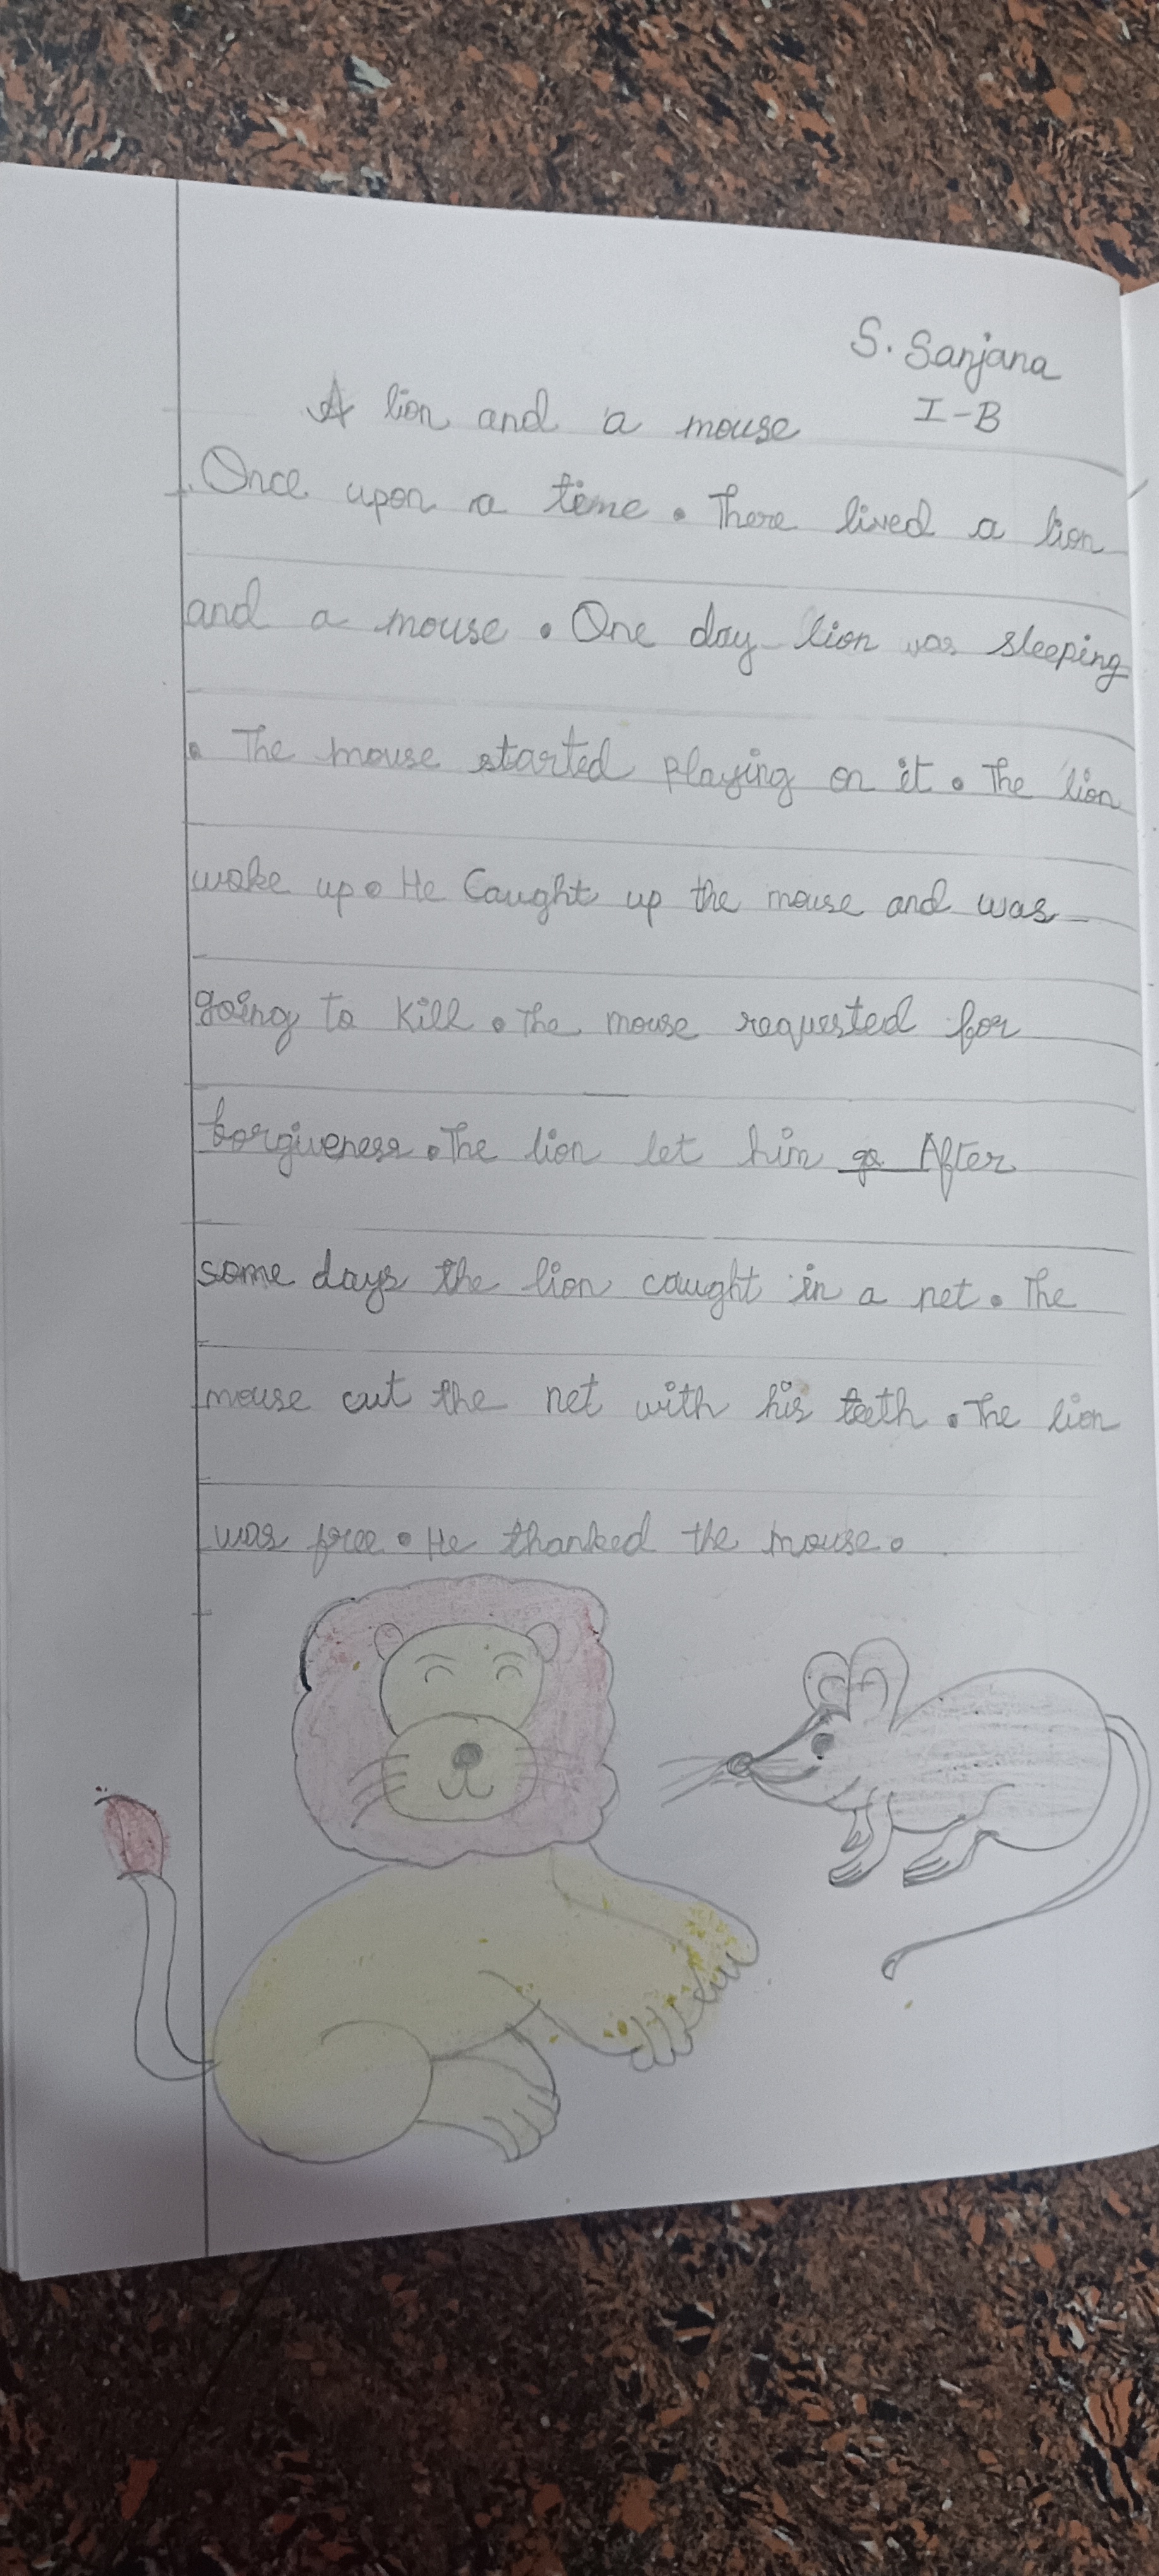 S. Sanjana
I-B
A lion and a mouse
Once upon a time. There lived a lion
and a mouse. One day lion was sleeping
. The mouse started playing on it. The lion
woke up. He Caught up the mouse and was
going to kill. The mouse requested for
forgiveness. The lion let him go After
some days the lion caught in a net. The
mouse cut the net with his teeth. The lion
was free. He thanked the mouse.